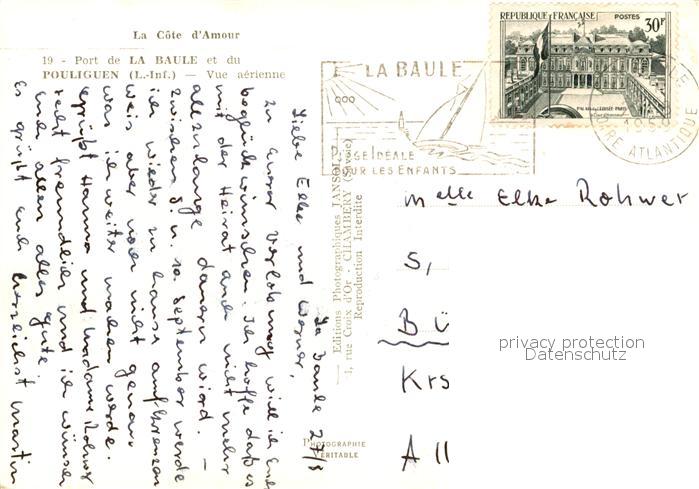 La Côte d'Amour
19 - Port de LA BAULE et du
POULIGUEN (L.-Inf.) — Vue aérienne
La Baule 27/8
Liebe Elke und Werner,
zu eurer Verlobung will ich Euch
beglückwünschen. Ich hoffe daß es
mit der Heirat auch nicht mehr
allzulange dauern wird. —
Zwischen 8 u. 10. September werde
ich wieder zu hause aufkreuzen
weis aber noch nicht genau
was ich weiter machen werde.
Grüßt Hanna und Madame Rohwer
recht freundlich und ich wünsche
euch allen alles gute.
Es grüßt euch herzlichst Martin
Editions Photographiques JANSOL
1, rue Croix d'Or - CHAMBÉRY (Savoie)
Reproduction Interdite
PHOTOGRAPHIE
VÉRITABLE
LA BAULE
PLAGE IDÉALE
POUR LES ENFANTS
RÉPUBLIQUE FRANÇAISE POSTES 30F
1959
LOIRE ATLANTIQUE
Melle Elke Rohwer
S,
BÜ
Krs
All
privacy protection
Datenschutz